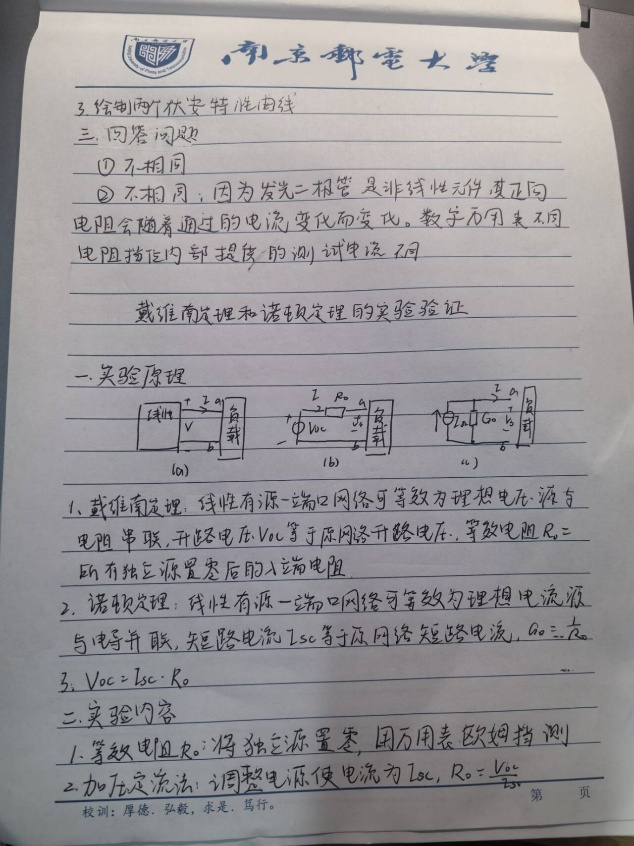 南京邮电大学
南京郵電大学
3. 绘制两个伏安特性曲线
三. 回答问题
① 不相同
② 不相同；因为发光二极管是非线性元件 其正向
电阻会随着通过的电流变化而变化。数字万用表不同
电阻挡位内部提供的测试电流不同
戴维南定理和诺顿定理的实验验证
一. 实验原理
线性 + I a V b 负载
I R0 a + VOC - b 负载
I a ISC G0 b 负载
(a) (b) (c)
1、戴维南定理：线性有源一端口网络可等效为理想电压源与
电阻串联，开路电压VOC等于原网络开路电压，等效电阻R0=
所有独立源置零后的入端电阻
2. 诺顿定理：线性有源一端口网络可等效为理想电流源
与电导并联，短路电流ISC等于原网络短路电流，G0=1/R0
3. VOC=ISC·R0
二. 实验内容
1. 等效电阻R0：将独立源置零，用万用表欧姆挡测
2. 加压定流法：调整电源使电流为ISC，R0=VOC/ISC
第 页
校训：厚德．弘毅，求是．笃行。